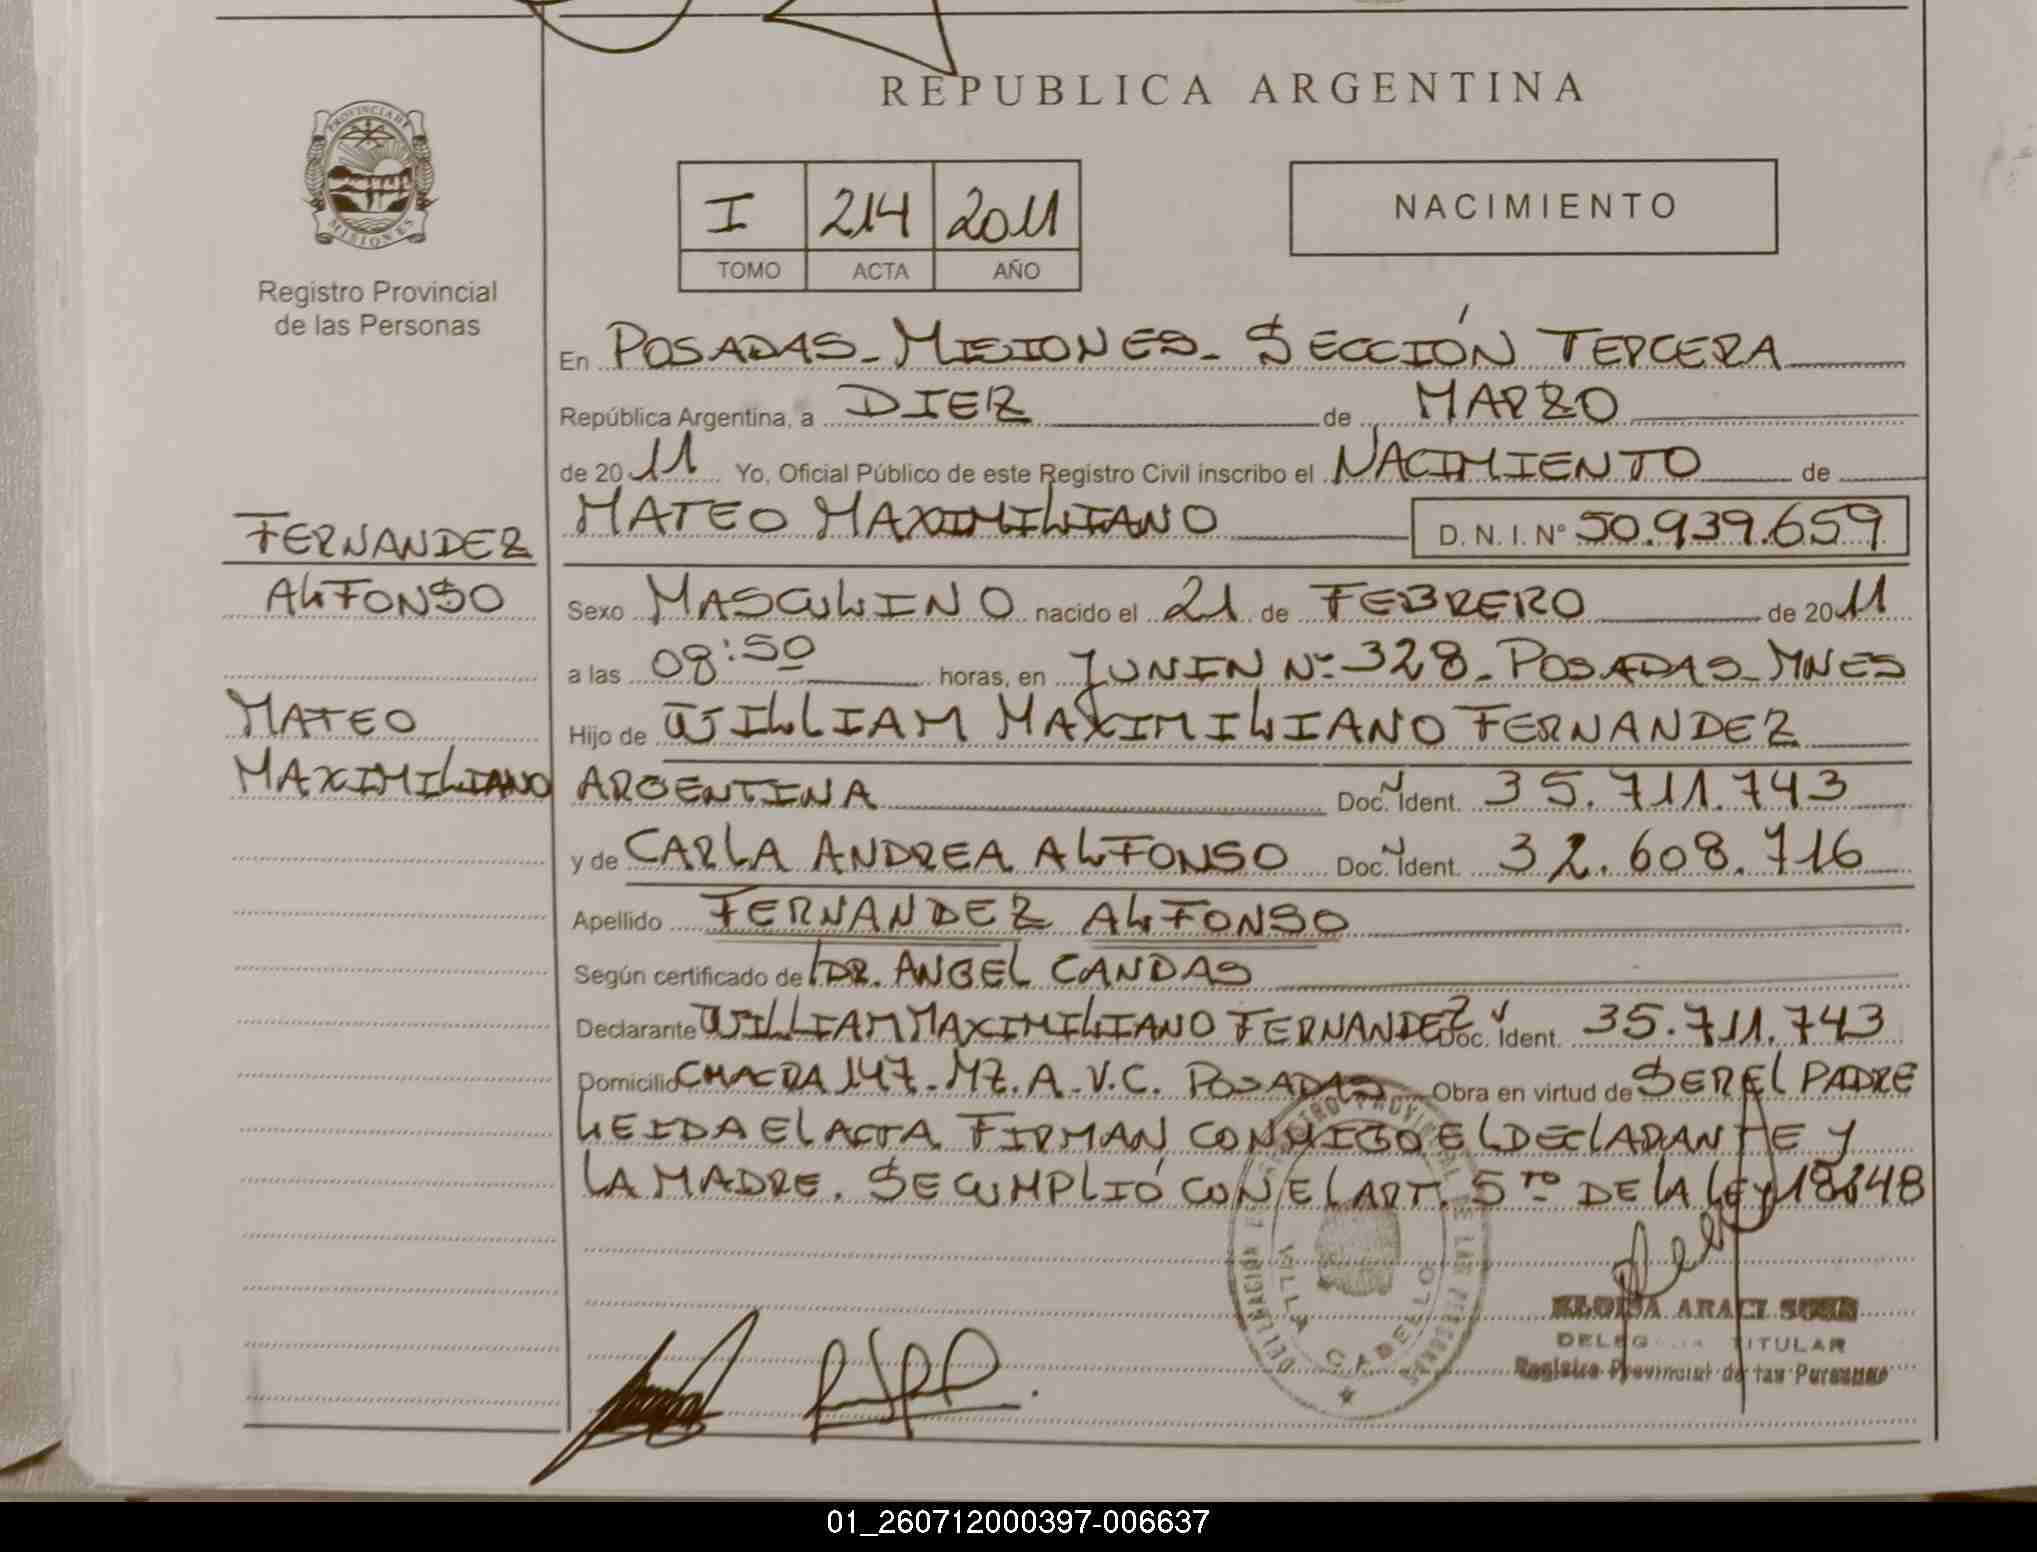 REPUBLICA ARGENTINA
PROVINCIA DE
MISIONES
Registro Provincial
de las Personas
I 214 2011
TOMO ACTA AÑO
NACIMIENTO
En POSADAS - MISIONES - SECCIÓN TERCERA
República Argentina, a DIEZ de MARZO
de 2011 Yo, Oficial Público de este Registro Civil inscribo el NACIMIENTO de
MATEO MAXIMILIANO D. N. I. Nº 50.939.659
FERNANDEZ
ALFONSO
MATEO
MAXIMILIANO
Sexo MASCULINO nacido el 21 de FEBRERO de 2011
a las 08:50 horas, en JUNIN Nº 328 - POSADAS - MNES
Hijo de WILLIAM MAXIMILIANO FERNANDEZ
ARGENTINA Doc. Ident. 35.711.743
y de CARLA ANDREA ALFONSO Doc. Ident. 32.608.716
Apellido FERNANDEZ ALFONSO
Según certificado de DR. ANGEL CANDAS
Declarante WILLIAM MAXIMILIANO FERNANDEZ Doc. Ident. 35.711.743
Domicilio CHACRA 147 - MZ. A - V.C. POSADAS Obra en virtud de SER EL PADRE
LEIDA EL ACTA FIRMAN CONMIGO EL DECLARANTE Y
LA MADRE. SE CUMPLIÓ CON EL ART. 5TO DE LA LEY 18248
DELEGACION REGISTRO PROVINCIAL DE LAS PERSONAS
VILLA CABELLO
ELOISA ARACI
TITULAR
Registro Provincial de las Personas
01_260712000397-006637